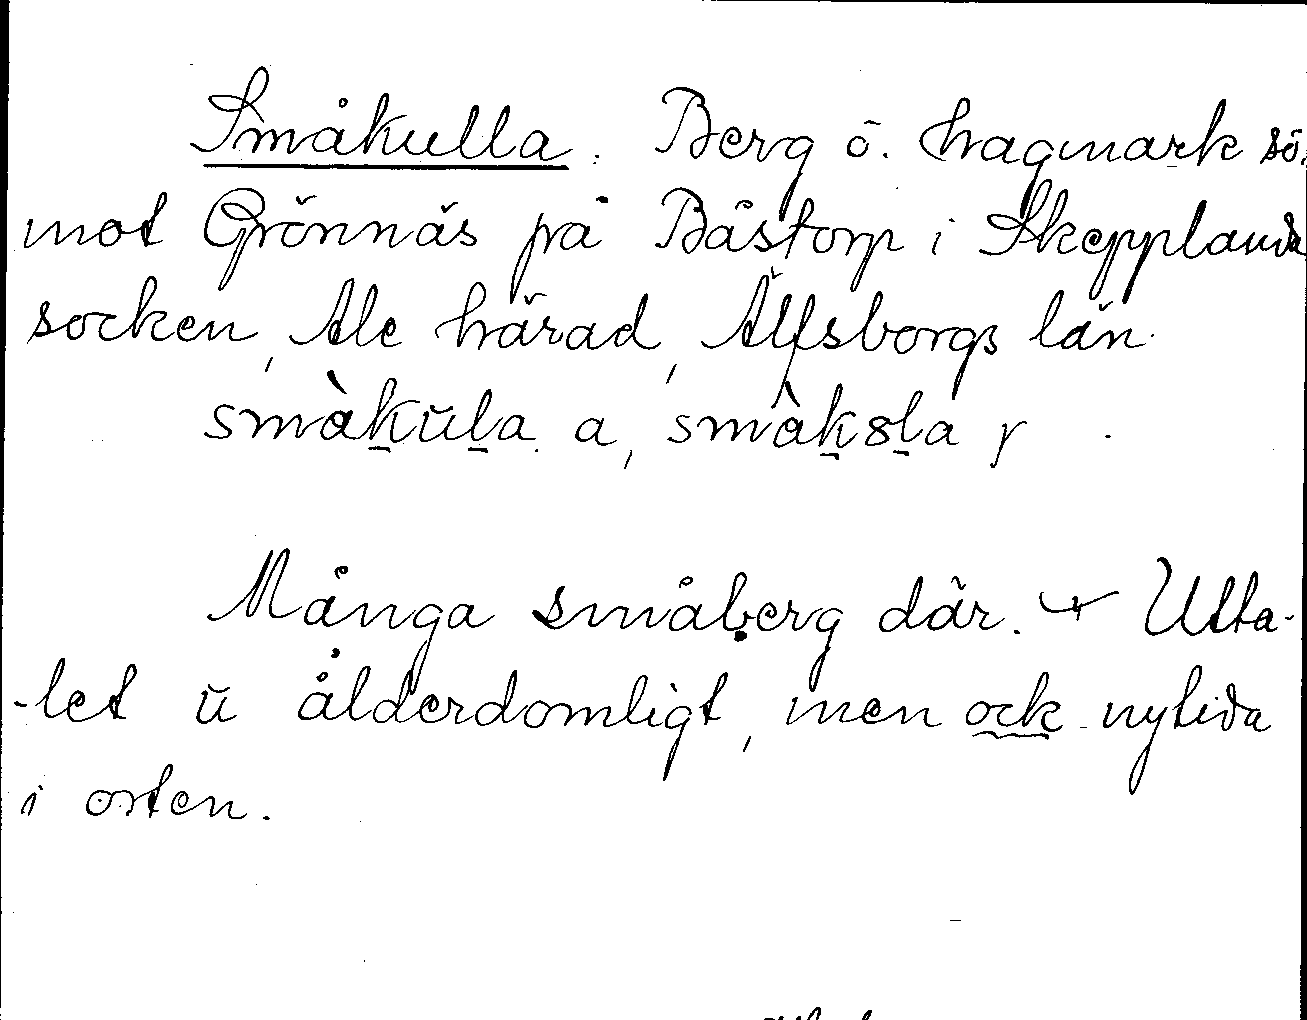 Småkulla. Berg ö. hagmark sö.
mot Grönnäs på Båstorp i Skepplanda
socken, Ale härad, Älfsborgs län.
småkŭla a, småksla y
Många småberg där. + Utta-
-let ŭ ålderdomligt, men ock nytida
i orten.